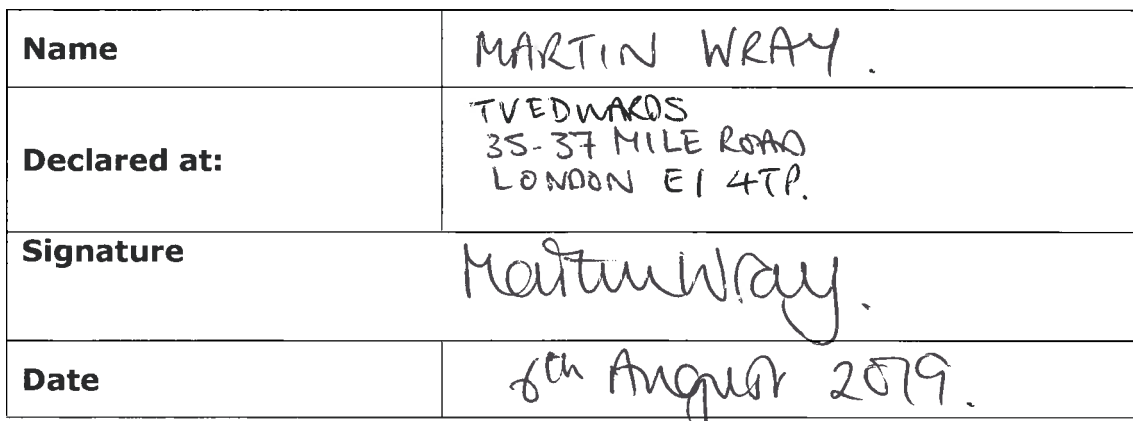 Name MARTIN WRAY.
Declared at: TV EDWARDS
35-37 MILE ROAD
LONDON E1 4TP.
Signature Martin Wray.
Date 6th August 2019.